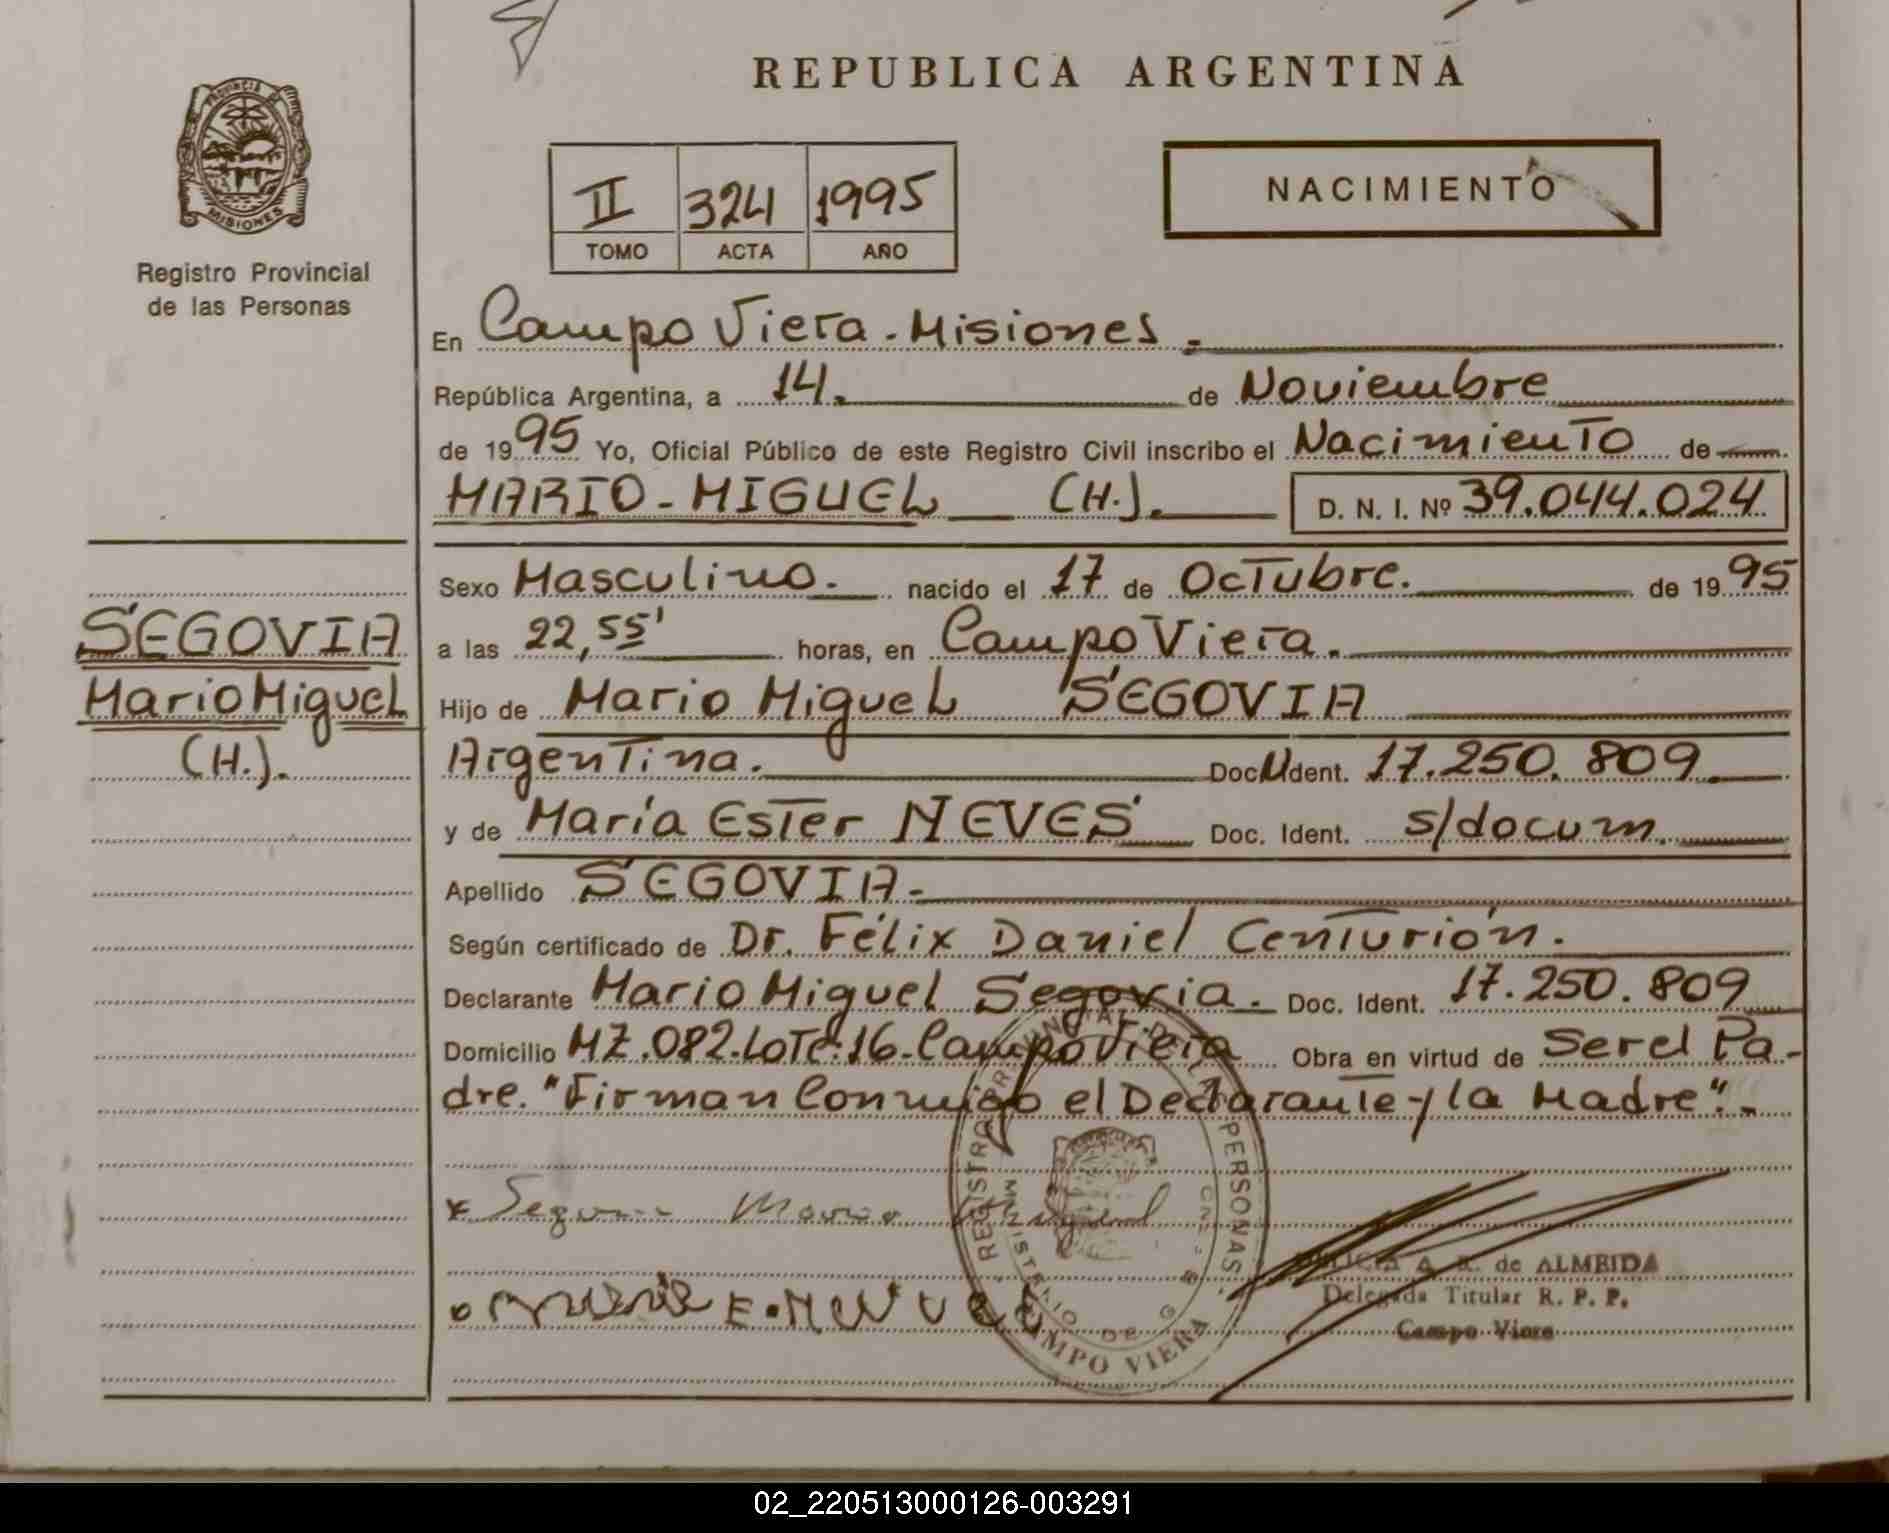 REPUBLICA ARGENTINA
PROVINCIA DE
MISIONES
Registro Provincial
de las Personas
II 324 1995
TOMO ACTA AÑO
NACIMIENTO
En Campo Viera - Misiones.
República Argentina, a 14. de Noviembre
de 1995 Yo, Oficial Público de este Registro Civil inscribo el Nacimiento de
MARIO - MIGUEL (H.). D. N. I. Nº 39.044.024
Sexo Masculino. nacido el 17 de Octubre. de 1995
SEGOVIA
Mario Miguel
(H.).
a las 22,55' horas, en Campo Viera.
Hijo de Mario Miguel SEGOVIA
Argentina. Doc. Ident. 17.250.809
y de María Ester NEVES Doc. Ident. s/docum.
Apellido SEGOVIA.-
Según certificado de Dr. Félix Daniel Centurión.
Declarante Mario Miguel Segovia. Doc. Ident. 17.250.809
Domicilio MZ.082.Lote:16-Campo Viera Obra en virtud de Ser el Pa-
dre. "Firman Conmigo el Declarante y la Madre".-
x Segovia Mario Miguel
REGISTRO PROVINCIAL DE LAS PERSONAS
MINISTERIO DE
CAMPO VIERA
A. R. de ALMEIDA
Delegada Titular R. P. P.
Campo Viera
02_220513000126-003291